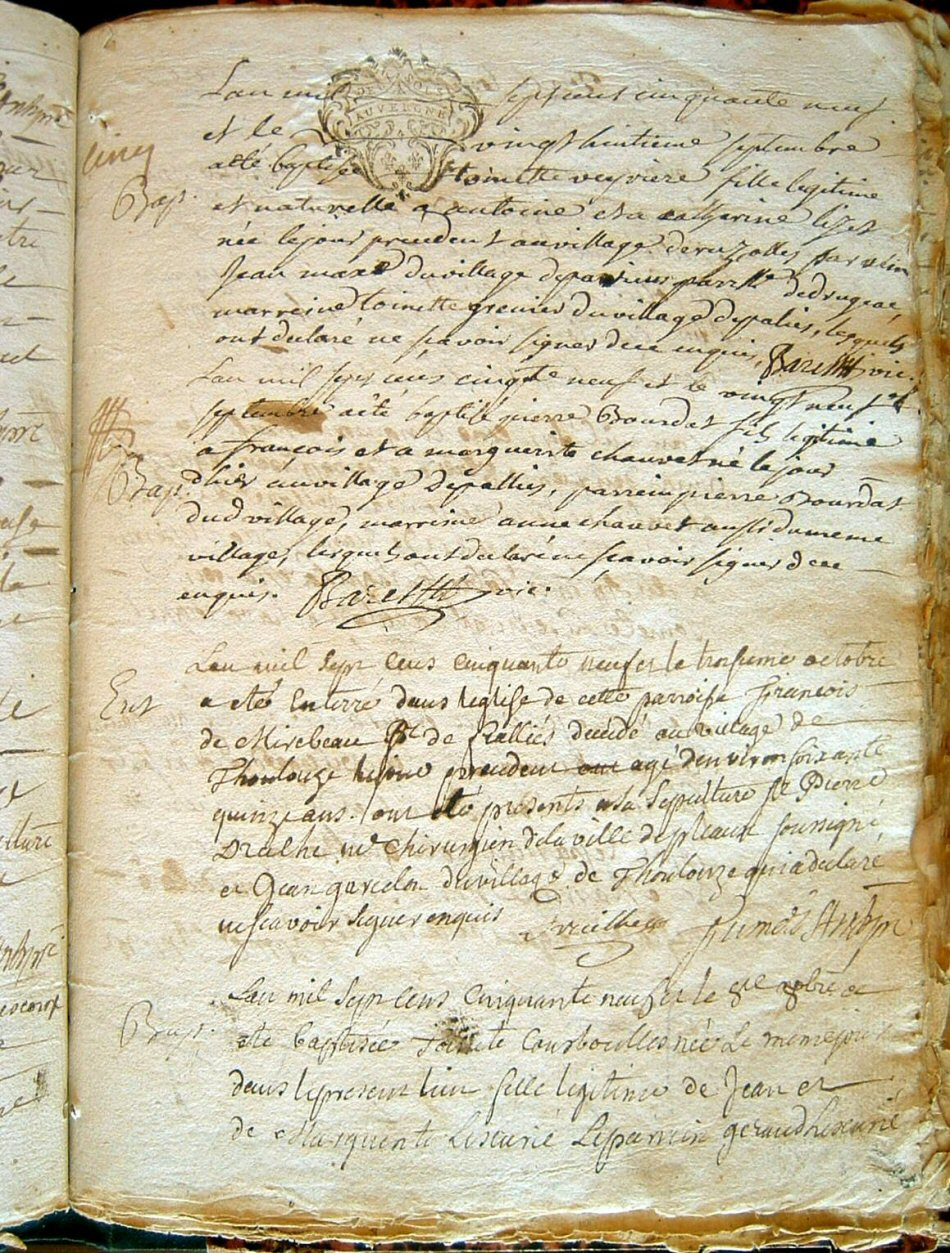 L'an mil sept cent cinquante neuf
cinq
et le vingt huitieme septembre
Bap.
a été baptisée toinette veyriere fille legitime
et naturelle a antoine et a catherine lizet
née le jour precedent au village de ruzolles parrein
Jean du village de parr.sse de drugeac
marreine toinette grenier du village de palies, lesquels
ont declaré ne sçavoir signer de ce enquis, vic.
L'an mil sept cens cinqte neuf et le vingt neuf
septembre a été baptisé pierre Bourdat fils legitime
a françois et a marguerite chauvet né le jour
Bap.
dhier au village de pallies, parrein pierre Bourdat
dud village, marreine anne chauvet aussi du meme
village, lesquels ont declaré ne sçavoir signer de ce
enquis. vic.
L'an mil sept cens cinquante neuf et le troisieme octobre
Ent
a eté enterré dans leglise de cette parroise François
de Mirebeau Sr de décédé au village de
Thoulouze le jour precedent agé denviron soixante
quinze ans. ont eté présents a sa sepulture Sr Pierre
me chirurgien de la ville de pleaux soussigné,
et Jean garcelon du village de Thoulouze qui a declaré
ne scavoir signer enquis
L'an mil sept cens cinquante neuf et le 8e 8bre a
Bap.
eté baptisée Toinete Courboulles née Le meme jour
dans le present lieu fille legitime de Jean et
de Marguerite Lescurié Le parrein geraud Lescurié